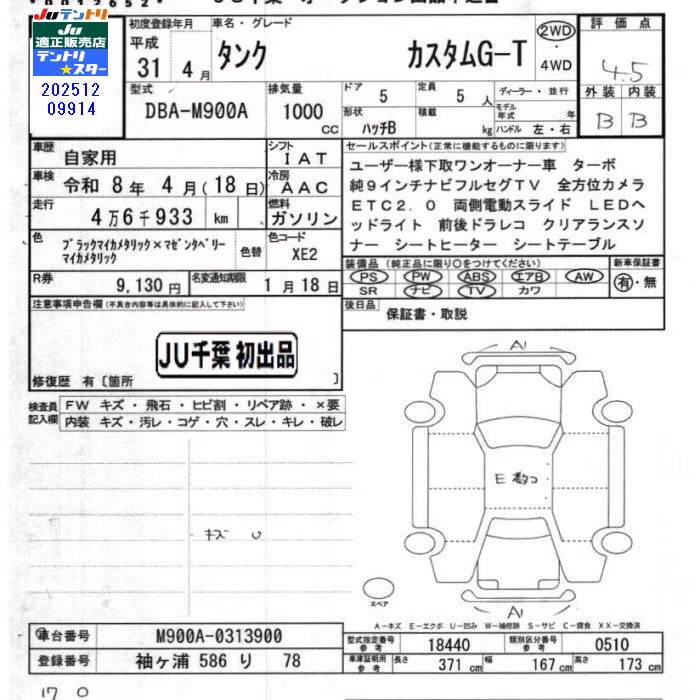 Juテントリ
JU
適正販売店
テントリ
★スター
202512
09914
初度登録年月
平成
31 4 月
車名・グレード
タンク カスタムG-T
2WD
4WD
評価点
4.5
外装 内装
B B
型式
DBA-M900A
排気量
1000
cc
ドア
5
定員
5 人
形状
ハッチB
積載
kg
ディーラー・並行
モデル年式 年
ハンドル 左・右
車歴
自家用
シフト
IAT
車検
令和 8年 4月(18日)
冷房
AAC
走行
4万6千933 km
燃料
ガソリン
色
ブラックマイカメタリック×マゼンタベリー
マイカメタリック
色替
色コード
XE2
R券
9,130円
名変通知期限
1月18日
セールスポイント(正常に機能するものに限ります)
ユーザー様下取ワンオーナー車 ターボ
純9インチナビフルセグTV 全方位カメラ
ETC2.0 両側電動スライド LEDヘ
ッドライト 前後ドラレコ クリアランスソ
ナー シートヒーター シートテーブル
装備品(純正品に限り○をつけてください)
PS PW ABS エアB AW
SR ナビ TV カワ
新車保証書
有・無
後日品
保証書・取説
注意事項申告欄(不具合内容等は具体的に記入して下さい)
JU千葉 初出品
修復歴 有〔箇所 〕
検査員
記入欄
FW キズ・飛石・ヒビ割・リペア跡・×要
内装 キズ・汚レ・コゲ・穴・スレ・キレ・破レ
キズ U
A1
E
A1
スペア
A-キズ E-エクボ U-凹み W-補修跡 S-サビ C-腐食 XX-交換済
車台番号
M900A-0313900
登録番号
袖ヶ浦 586 り 78
型式指定番号
参考
18440
類別区分番号
参考
0510
車庫証明用
参考
長さ 371 cm
幅 167 cm
高さ 173 cm